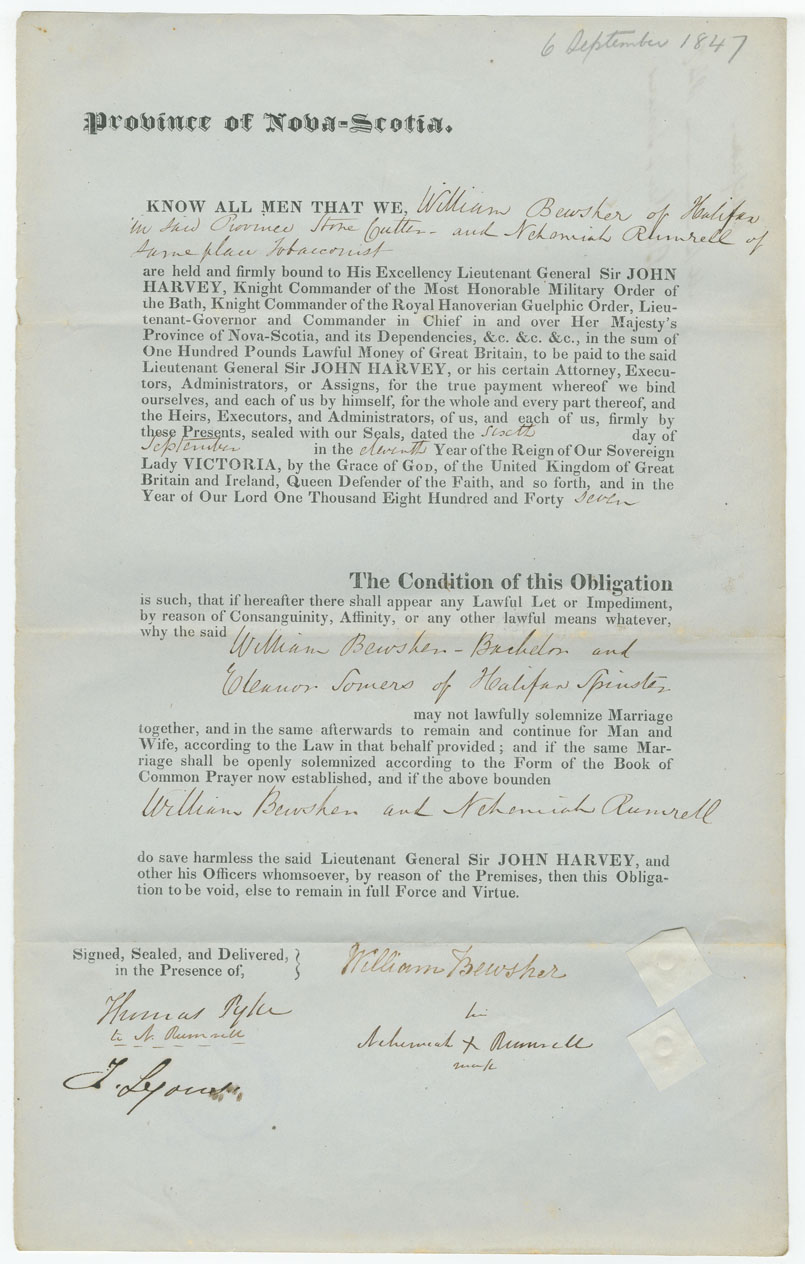 6 September 1847
Province of Nova-Scotia.
KNOW ALL MEN THAT WE, William Bewsher of Halifax
in said Province Stone Cutter - and Nehemiah Rumrell of
same place Tobacconist
are held and firmly bound to His Excellency Lieutenant General Sir JOHN
HARVEY, Knight Commander of the Most Honorable Military Order of
the Bath, Knight Commander of the Royal Hanoverian Guelphic Order, Lieu-
tenant-Governor and Commander in Chief in and over Her Majesty's
Province of Nova-Scotia, and its Dependencies, &c. &c. &c., in the sum of
One Hundred Pounds Lawful Money of Great Britain, to be paid to the said
Lieutenant General Sir JOHN HARVEY, or his certain Attorney, Execu-
tors, Administrators, or Assigns, for the true payment whereof we bind
ourselves, and each of us by himself, for the whole and every part thereof, and
the Heirs, Executors, and Administrators, of us, and each of us, firmly by
these Presents, sealed with our Seals, dated the sixth day of
September in the eleventh Year of the Reign of Our Sovereign
Lady VICTORIA, by the Grace of GOD, of the United Kingdom of Great
Britain and Ireland, Queen Defender of the Faith, and so forth, and in the
Year of Our Lord One Thousand Eight Hundred and Forty seven
The Condition of this Obligation
is such, that if hereafter there shall appear any Lawful Let or Impediment,
by reason of Consanguinity, Affinity, or any other lawful means whatever,
why the said William Bewsher - Bachelor and
Eleanor Somers of Halifax Spinster
may not lawfully solemnize Marriage
together, and in the same afterwards to remain and continue for Man and
Wife, according to the Law in that behalf provided; and if the same Mar-
riage shall be openly solemnized according to the Form of the Book of
Common Prayer now established, and if the above bounden
William Bewsher and Nehemiah Rumrell
do save harmless the said Lieutenant General Sir JOHN HARVEY, and
other his Officers whomsoever, by reason of the Premises, then this Obliga-
tion to be void, else to remain in full Force and Virtue.
Signed, Sealed, and Delivered,
in the Presence of,
William Bewsher
Thomas Pyke
to N. Rumrell
his
Nehemiah X Rumrell
mark
T. Lyons